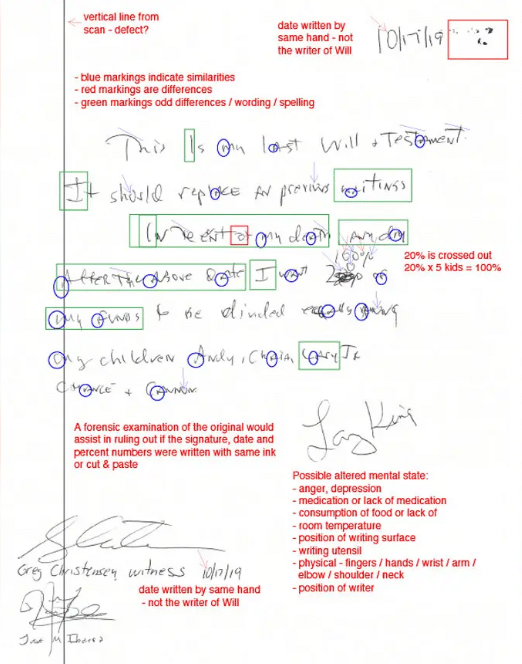 vertical line from
scan - defect?
date written by
same hand - not
the writer of Will
10/17/19
- blue markings indicate similarities
- red markings are differences
- green markings odd differences / wording / spelling
This Is my last Will + Testament.
It should replace all previous writings
In the Evnt of my death, any day
100%
20% is crossed out
20% x 5 kids = 100%
After the above Date I want 20% of
my funds to be divided equally among
my children Andy, Chaia, Larry Jr
Chance + Cannon
A forensic examination of the original would
assist in ruling out if the signature, date and
percent numbers were written with same ink
or cut & paste
Larry King
Possible altered mental state:
- anger, depression
- medication or lack of medication
- consumption of food or lack of
- room temperature
- position of writing surface
- writing utensil
- physical - fingers / hands / wrist / arm /
elbow / shoulder / neck
- position of writer
Greg Christensen witness 10/17/19
date written by same hand
- not the writer of Will